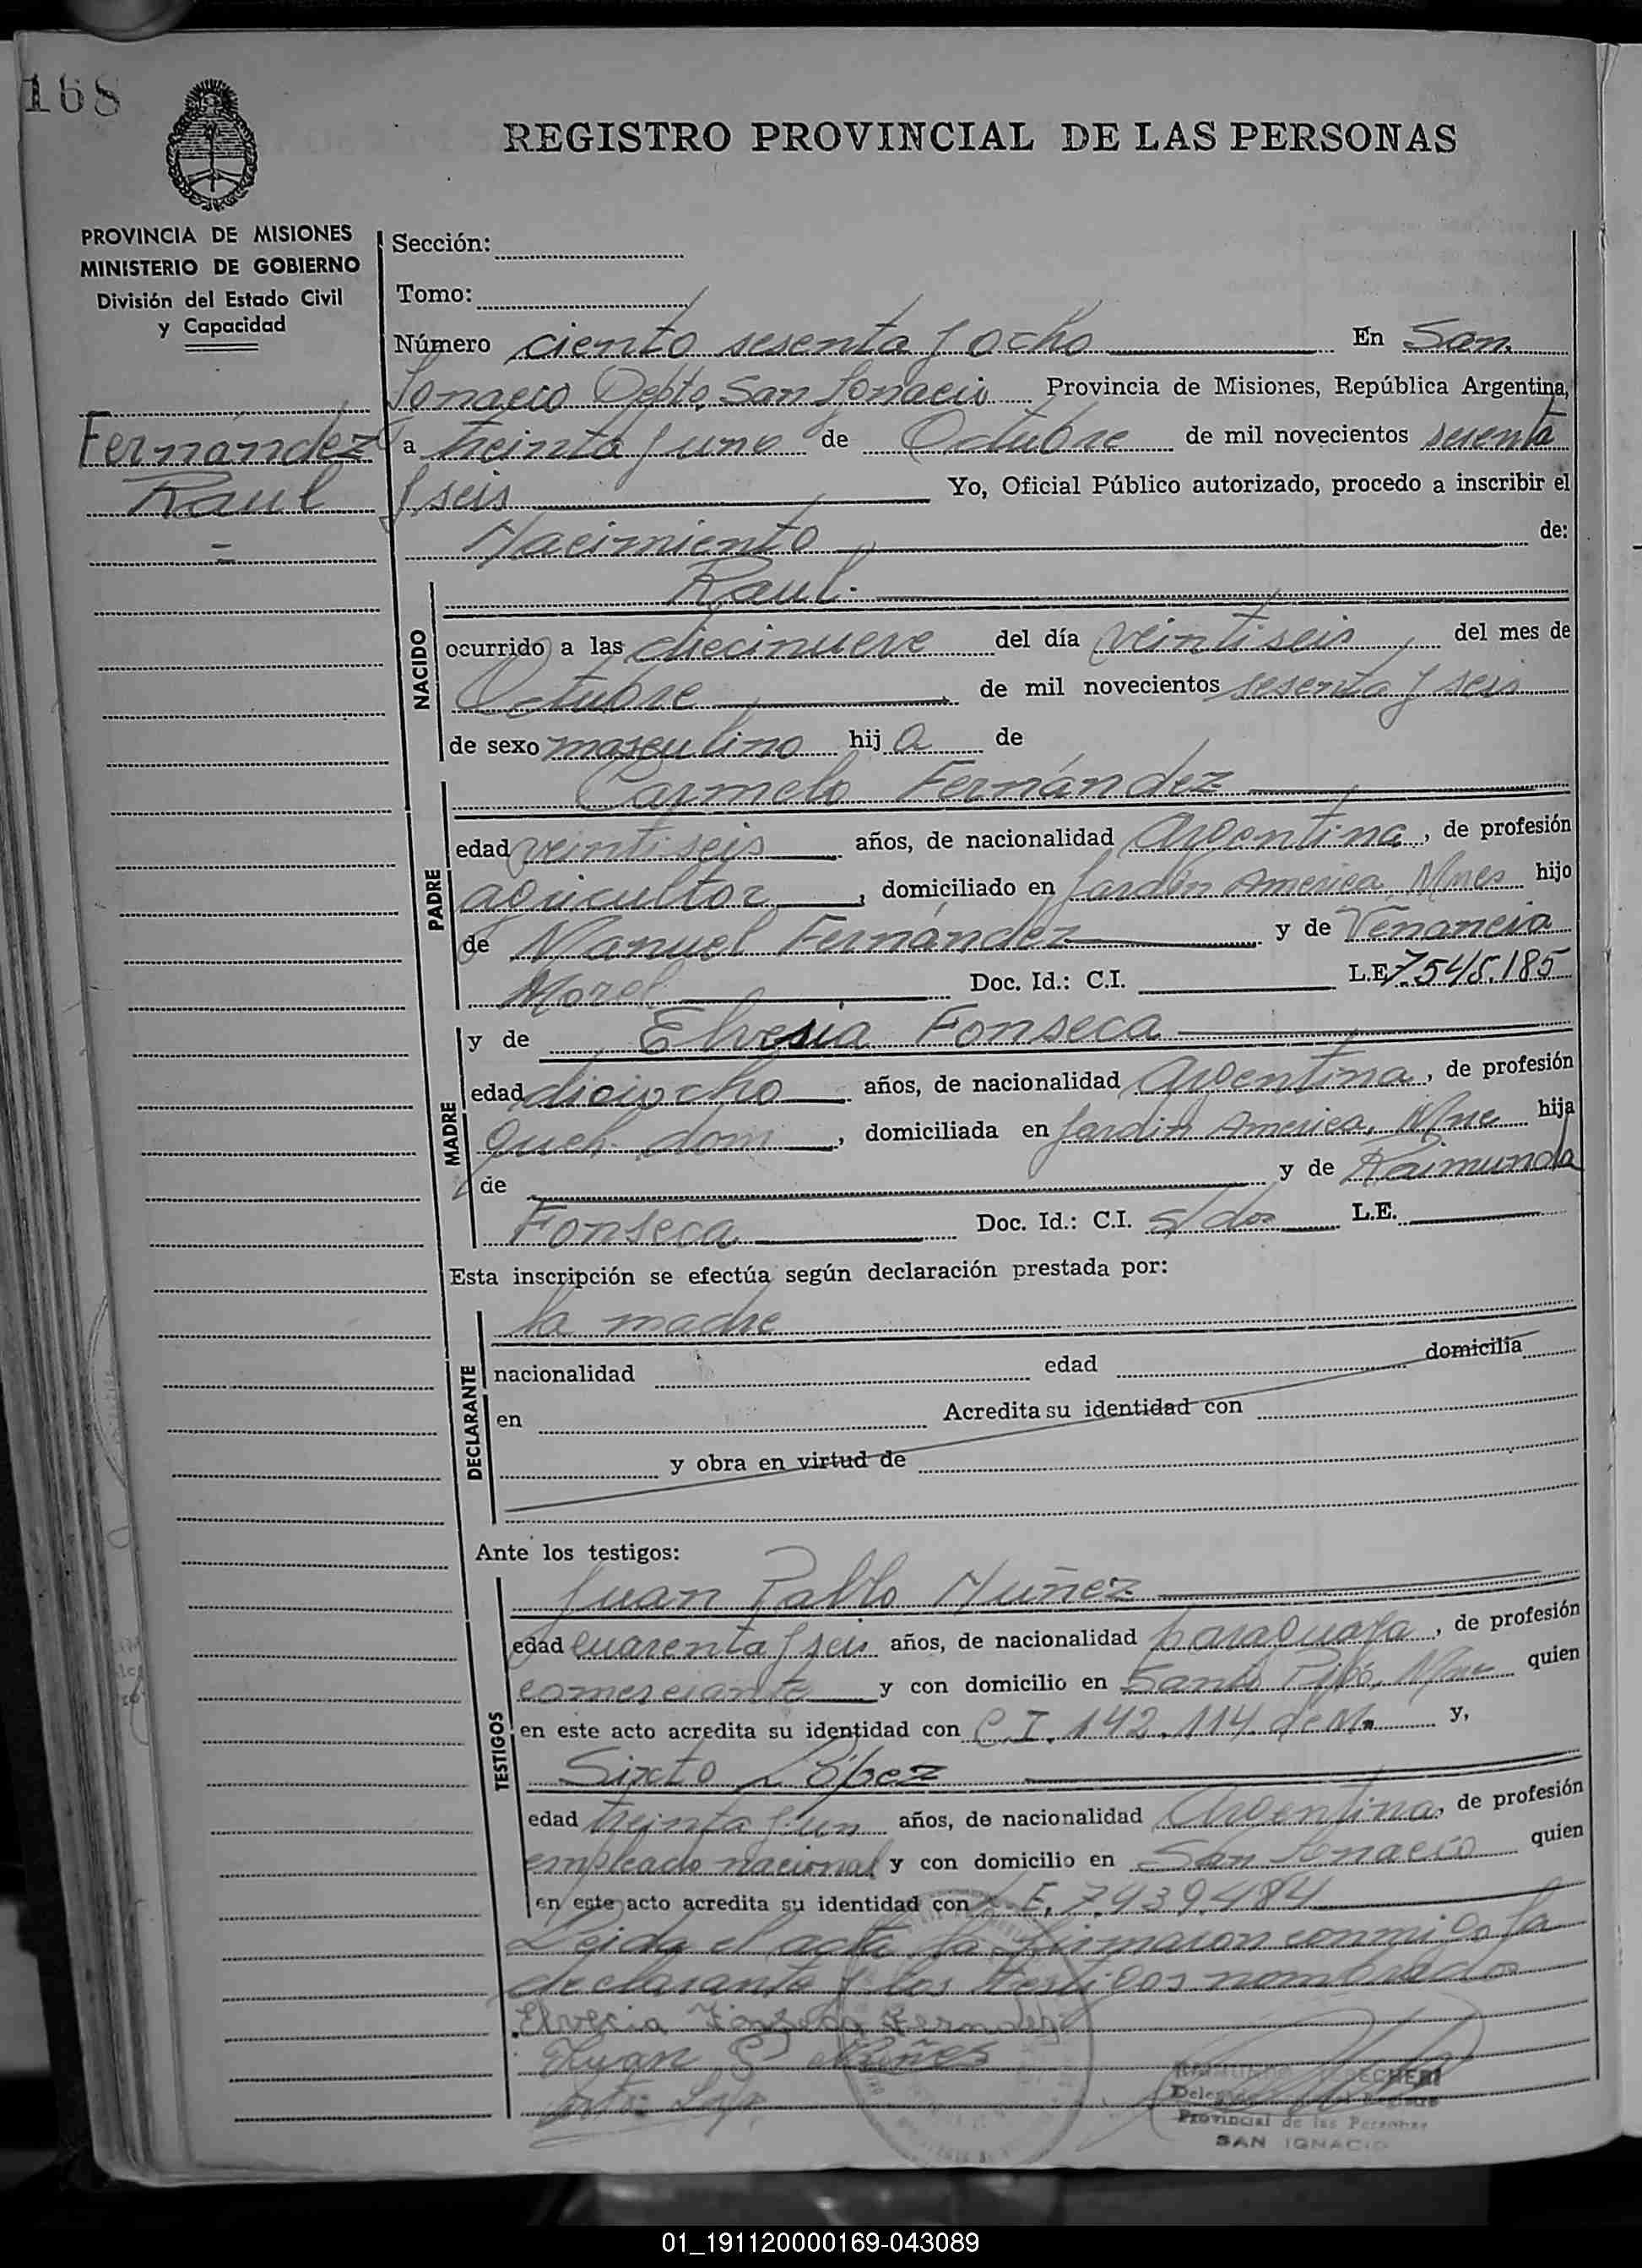 168
REGISTRO PROVINCIAL DE LAS PERSONAS
PROVINCIA DE MISIONES
MINISTERIO DE GOBIERNO
División del Estado Civil
y Capacidad
Fernández
Raul
Sección:
Tomo:
Número ciento sesenta y ocho En San
Ignacio Depto. San Ignacio Provincia de Misiones, República Argentina,
a treinta y uno de Octubre de mil novecientos sesenta
y seis Yo, Oficial Público autorizado, procedo a inscribir el
Nacimiento de:
NACIDO
Raul.
ocurrido a las diecinueve del día veintiseis del mes de
Octubre de mil novecientos sesenta y seis
de sexo masculino hij o de
PADRE
Carmelo Fernández
edad veintiseis años, de nacionalidad Argentina, de profesión
agricultor, domiciliado en Jardín America, Mnes hijo
de Manuel Fernández y de Venancia
Morel Doc. Id.: C.I. L.E. 7.545.185
MADRE
y de Elvesia Fonseca
edad dieciocho años, de nacionalidad Argentina, de profesión
Queh. dom, domiciliada en Jardin America, Mne hija
de y de Raimunda
Fonseca Doc. Id.: C.I. L.E.
Esta inscripción se efectúa según declaración prestada por:
DECLARANTE
la madre
nacionalidad edad domicilia
en Acredita su identidad con
y obra en virtud de
Ante los testigos:
TESTIGOS
Juan Pablo Núñez
edad cuarenta y seis años, de nacionalidad paraguaya, de profesión
comerciante y con domicilio en Santo Pipó, Mne quien
en este acto acredita su identidad con C.I. 142.114 de M. y,
Sixto López
edad treinta y un años, de nacionalidad Argentina, de profesión
empleado nacional y con domicilio en San Ignacio quien
en este acto acredita su identidad con L.E. 7.939.484
Leida el acta la firmaron conmigo la
declarante y los testigos nombrados
Elvecia Fonseca Fernandez
Juan P. Núñez
Delegado
Provincial de las Personas
SAN IGNACIO
01_191120000169-043089